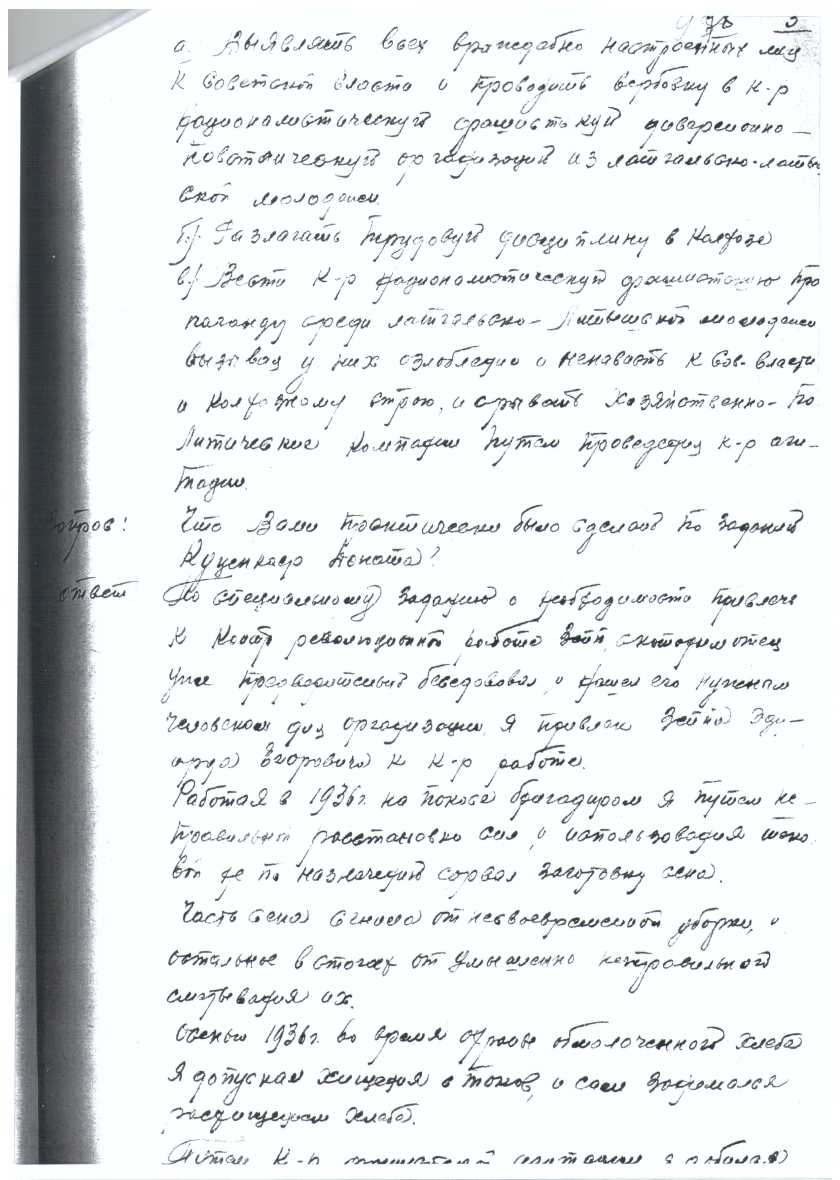 а. Выявлять всех враждебно настроенных лиц
к советской власти и проводить вербовку в к-р
националистическую фашистскую диверсионно-
повстанческую организацию из латгальско-латы-
ской молодежи.
б/. Разлагать трудовую дисциплину в колхозе
в/ Вести к-р националистическую фашистскую про
паганду среди латгальско-латышской молодежи
вызывая у них озлобление и ненависть к сов-власти
и колхозному строю, и срывать хозяйственно-по
литические компании путем проведения к-р аги-
тации.
Вопрос: Что Вами практически было сделано по заданию
Доната?
ответ По специальному заданию о необходимости привлечь
к контр революционной работе Зейп, с которым отец
уже предварительно беседовал, и нашел его нужным
человеком для организации. Я привлек Зейпа Эду-
арда Егоровича к к-р работе.
Работая в 1936 г. на покосе бригадиром я путем не-
правильной расстановки сил, и использования
не по назначению сорвал заготовку сена.
Часть сена сгнила от несвоевременной уборки, и
остальное в стогах от умышленно неправильного
сметывания их.
Осенью 1936 г. во время охраны обмолоченного хлеба
я допускал хищения с токов, и сам занимался
расхищением хлеба.
Путем к-р агитации